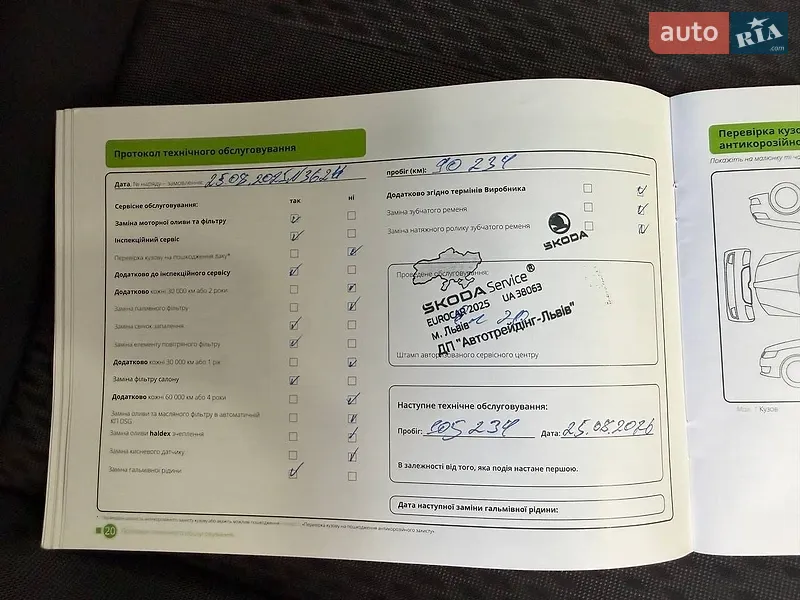 auto RIA .com
Протокол технічного обслуговування
Перевірка кузо
антикорозійно
Покажіть на малюнку ті ч
Дата, № наряду – замовлення: 25.08.2025
пробіг (км): 90 234
Сервісне обслуговування: так ні
Заміна моторної оливи та фільтру
Інспекційний сервіс
Перевірка кузову на пошкодження лаку*
Додатково до інспекційного сервісу
Додатково кожні 30 000 км або 2 роки
Заміна паливного фільтру
Заміна свічок запалення
Заміна елементу повітряного фільтру
Додатково кожні 30 000 км або 1 рік
Заміна фільтру салону
Додатково кожні 60 000 км або 4 роки
Заміна оливи та масляного фільтру в автоматичній
КП DSG
Заміна оливи haldex зчеплення
Заміна кисневого датчику
Заміна гальмівної рідини
Додатково згідно термінів Виробника
Заміна зубчатого ременя
Заміна натяжного ролику зубчатого ременя
SKODA
Проведене обслуговування:
SKODA Service®
EUROCAR 2025 UA 38063
м. Львів
ДП "Автотрейдінг-Львів"
Штамп авторизованого сервісного центру
Наступне технічне обслуговування:
Пробіг: 105 234 Дата: 25.08.2026
В залежності від того, яка подія настане першою.
Дата наступної заміни гальмівної рідини:
20
Кузові